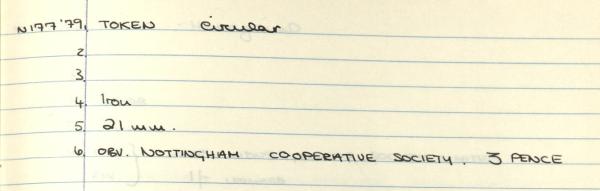 N177'79. TOKEN circular
2.
3.
4. Iron
5. 21 mm.
6. OBV. NOTTINGHAM COOPERATIVE SOCIETY. 3 PENCE